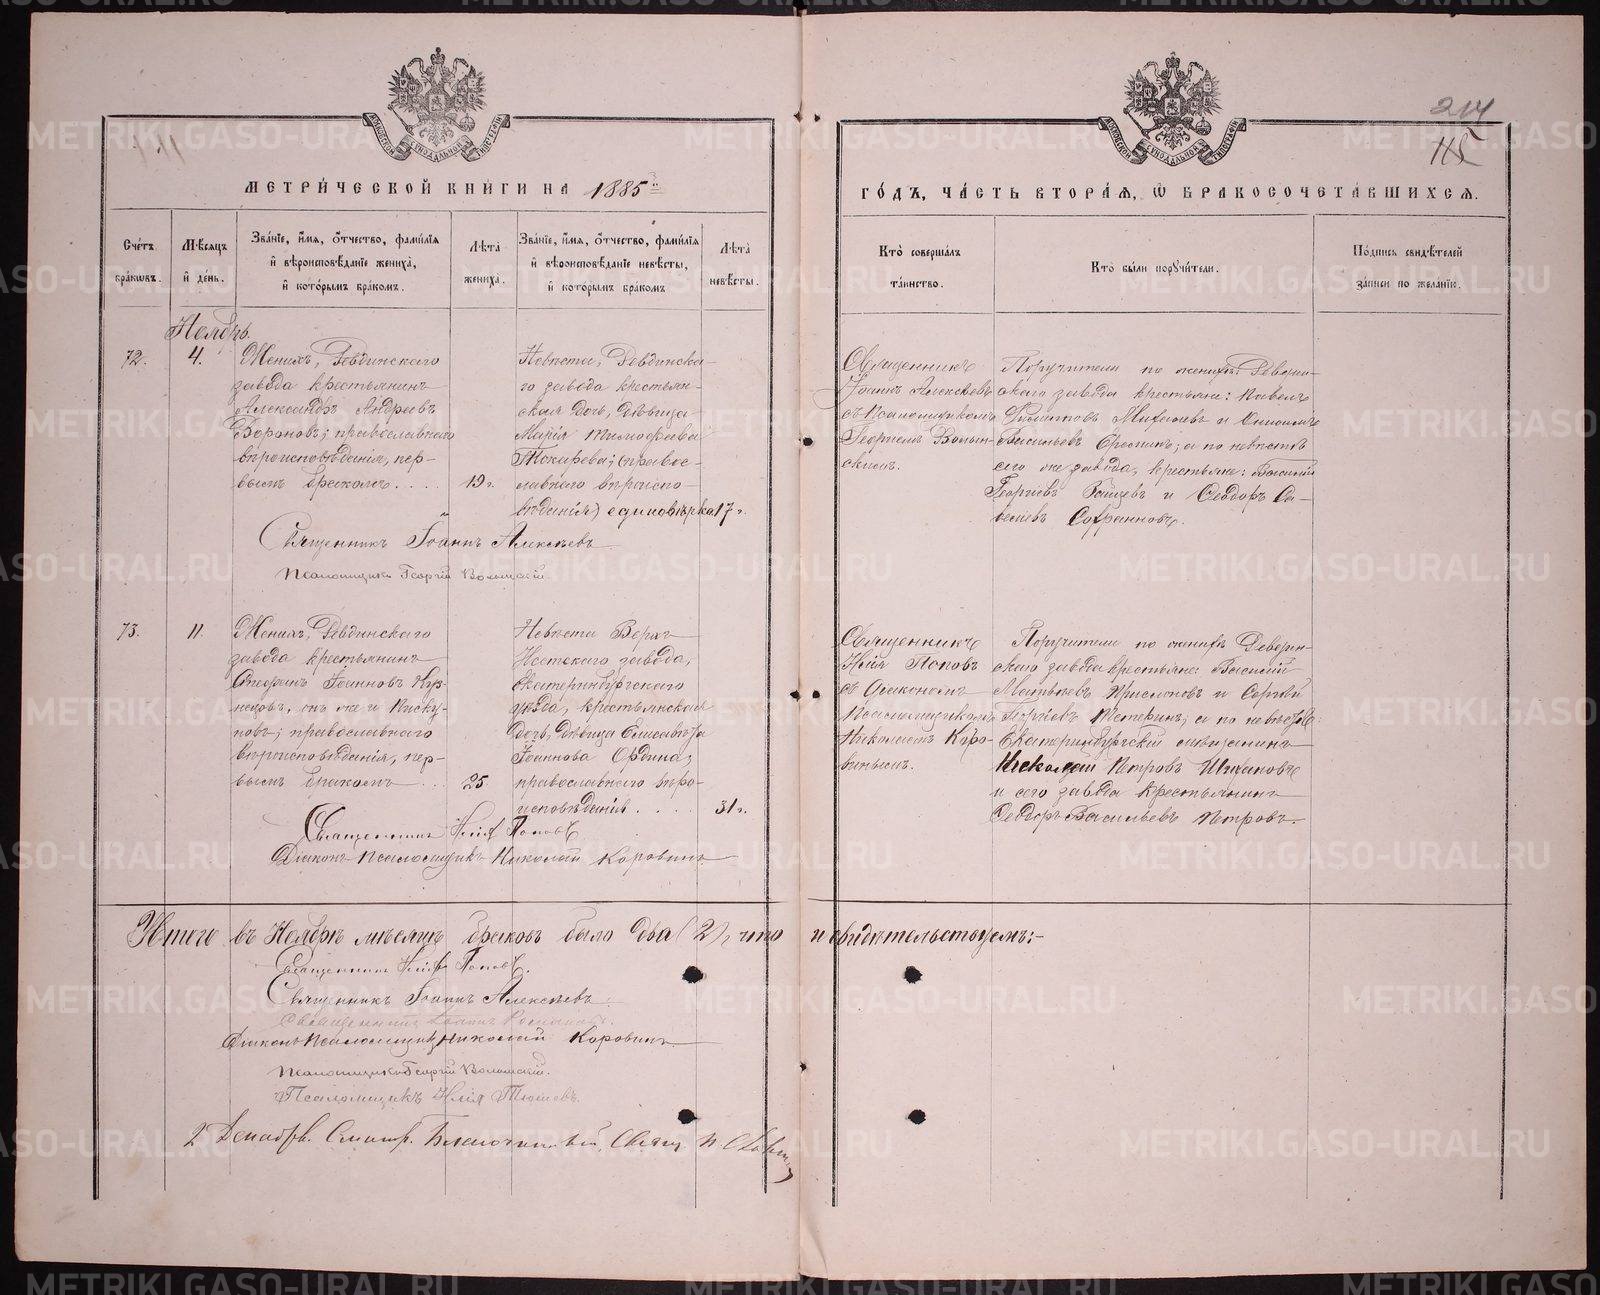 214
115
МЕТРИЧЕСКОЙ КНИГИ НА 1885
ГОДЪ, ЧАСТЬ ВТОРАЯ, Ѡ БРАКОСОЧЕТАВШИХСЯ.
Счетъ браковъ.
Мѣсяцъ и день.
Званіе, имя, отчество, фамилія и вѣроисповѣданіе жениха, и которымъ бракомъ.
Лѣта жениха.
Званіе, имя, отчество, фамилія и вѣроисповѣданіе невѣсты, и которымъ бракомъ
Лѣта невѣсты.
Кто совершалъ таинство.
Кто были поручители.
Подпись свидѣтелей записи по желанію.
Ноябрь.
72.
4.
Женихъ, Ревдинскаго
завода крестьянинъ
Александръ Андреевъ
Вороновъ; православнаго
вѣроисповѣданія, пер-
вымъ бракомъ....
19 г.
Невѣста, Ревдинска-
го завода крестьян-
ская дочь, дѣвица
Марія Тимофеева
Токарева; (правос-
лавнаго вѣроиспо-
вѣданія) единовѣрка
17 г.
Священникъ
Іоаннъ Алексѣевъ
съ Псаломщикомъ
Георгіемъ Волын-
скимъ.
Поручители по женихѣ: Ревдин-
скаго завода крестьяне: Павелъ
Филиповъ
Васильевъ
сего же завода, крестьяне: Василій
Георгіевъ Зайцевъ и Ѳеодоръ Са-
веліевъ Софроновъ.
Священникъ Іоаннъ Алексѣевъ
Псаломщикъ Георгій Волынскій
73.
11.
Женихъ, Ревдинскаго
завода крестьянинъ
Стефанъ Іоанновъ Куз-
нецовъ, онъ же и Писку-
новъ; православнаго
вѣроисповѣданія, пер-
вымъ бракомъ..
25.
Невѣста Верхъ-
Исетскаго завода,
Екатеринбургскаго
уѣзда, крестьянская
дочь, дѣвица Елисавета
Іоаннова Ордина,
православнаго вѣро-
исповѣданія....
31 г.
Священникъ
Илія Поповъ
съ Діакономъ
Псаломщикомъ
Николаемъ Коро-
винымъ.
Поручители по женихѣ Ревдин-
скаго завода крестьяне: Василій
Матвѣевъ Прислоновъ и Сергій
Георгіевъ Тетеринъ; а по невѣстѣ:
Екатеринбургскій мѣщанинъ
Николай Петровъ
и сего завода крестьянинъ
Ѳеодоръ Васильевъ Петровъ.
Священникъ Илія Поповъ
Діаконъ Псаломщикъ Николай Коровинъ
Итого въ Ноябрѣ мѣсяцѣ браковъ было два (2), что и свидѣтельствуемъ:-
Священникъ Илія Поповъ.
Священникъ Іоаннъ Алексѣевъ.
Священникъ Іоаннъ
Діаконъ Псаломщикъ Николай Коровинъ
Псаломщикъ Георгій Волынскій.
Псаломщикъ Илія Тюшевъ.
2 Декабря. Смотр. Благочинный, Свящ.
METRIKI.GASO-URAL.RU